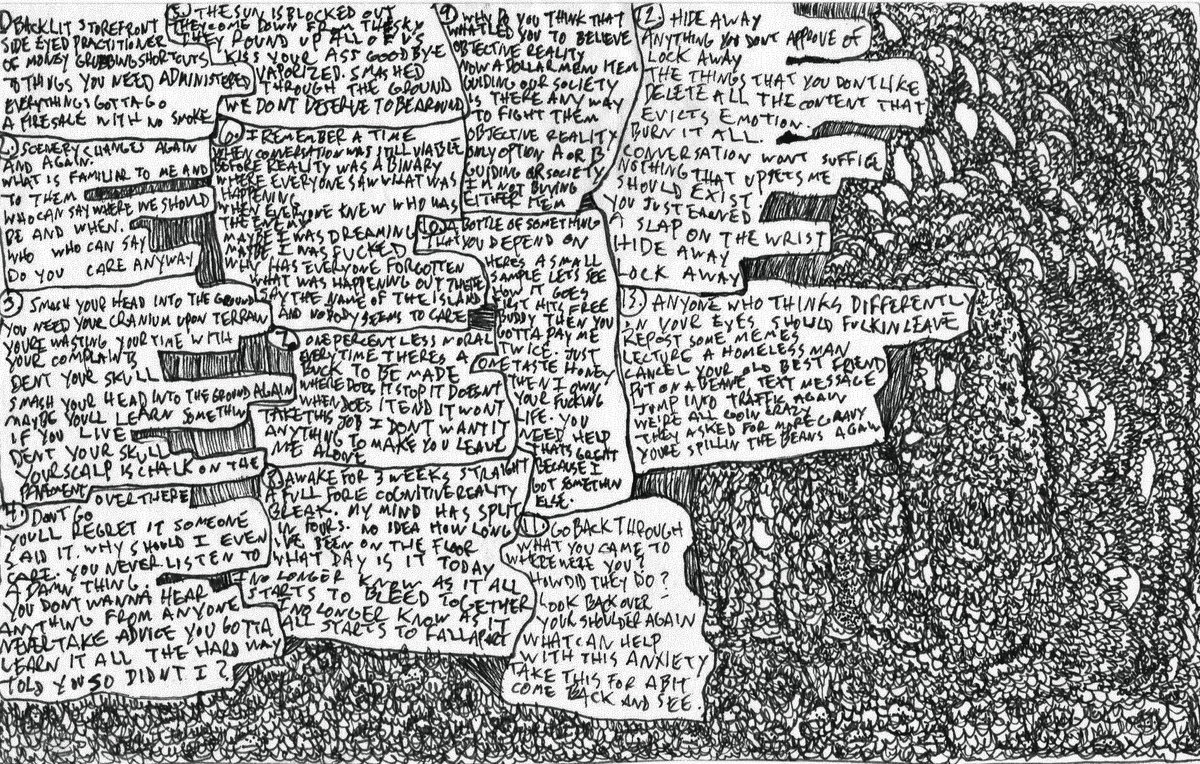 1) BACKLIT STOREFRONT
SIDE EYED PRACTITIONER
OF MONEY GRUBBING SHORTCUTS
TO THINGS YOU NEED ADMINISTERED
EVERYTHINGS GOTTA GO
A FIRESALE WITH NO SMOKE
2) SCENERY CHANGES AGAIN
AND AGAIN.
WHAT IS FAMILIAR TO ME AND
TO THEM
WHO CAN SAY WHERE WE SHOULD
BE AND WHEN.
WHO CAN SAY
DO YOU CARE ANYWAY
3) SMASH YOUR HEAD INTO THE GROUND
YOU NEED YOUR CRANIUM UPON TERRAIN
YOU'RE WASTING YOUR TIME WITH
YOUR COMPLAINTS
DENT YOUR SKULL
SMASH YOUR HEAD INTO THE GROUND AGAIN
MAYBE YOU'LL LEARN SOMETHIN
IF YOU LIVE
DENT YOUR SKULL
YOUR SCALP IS CHALK ON THE
PAVEMENT
4) DONT GO OVER THERE
YOU'LL REGRET IT SOMEONE
SAID IT. WHY SHOULD I EVEN
CARE. YOU NEVER LISTEN TO
A DAMN THING.
YOU DONT WANNA HEAR
ANYTHING FROM ANYONE
NEVER TAKE ADVICE YOU GOTTA
LEARN IT ALL THE HARD WAY
TOLD YOU SO DIDNT I?
5) THE SUN IS BLOCKED OUT
THEY COME DOWN FROM THE SKY
THEY ROUND UP ALL OF US
KISS YOUR ASS GOODBYE
VAPORIZED. SMASHED
THROUGH THE GROUND
WE DONT DESERVE TO BE AROUND
6) I REMEMBER A TIME
WHEN CONVERSATION WAS STILL VIABLE
BEFORE REALITY WAS A BINARY
WHERE EVERYONE SAW WHAT WAS
HAPPENING
WHEN EVERYONE KNEW WHO WAS
THE ENEMY
MAYBE I WAS DREAMING
MAYBE I WAS FUCKED
WHY HAS EVERYONE FORGOTTEN
WHAT WAS HAPPENING OUT THERE
SAY THE NAME OF THE ISLAND
AND NOBODY SEEMS TO CARE
7) ONE PERCENT LESS MORAL
EVERYTIME THERES A
BUCK TO BE MADE
WHERE DOES IT STOP IT DOESNT
WHEN DOES IT END IT WONT
TAKE THIS JOB I DONT WANT IT
ANYTHING TO MAKE YOU LEAVE
ME ALONE
8) AWAKE FOR 3 WEEKS STRAIGHT
A FULL FORCE COGNITIVE REALITY
BREAK. MY MIND HAS SPLIT
IN FOURS. NO IDEA HOW LONG
I'VE BEEN ON THE FLOOR
WHAT DAY IS IT TODAY
I NO LONGER KNOW AS IT ALL
STARTS TO BLEED TOGETHER
I NO LONGER KNOW AS IT
ALL STARTS TO FALL APART
9) WHY DO YOU THINK THAT
WHAT LED YOU TO BELIEVE
OBJECTIVE REALITY
NOW A DOLLAR MENU ITEM
GUIDING OUR SOCIETY
IS THERE ANY WAY
TO FIGHT THEM
OBJECTIVE REALITY
ONLY OPTION A OR B
GUIDING OUR SOCIETY
I'M NOT BUYING
EITHER ITEM
10) A BOTTLE OF SOMETHING
THAT YOU DEPEND ON
HERE'S A SMALL
SAMPLE LETS SEE
HOW IT GOES
FIRST HITS FREE
BUDDY THEN YOU
GOTTA PAY ME
TWICE. JUST
ONE TASTE HONEY
THEN I OWN
YOUR FUCKING
LIFE. YOU
NEED HELP
THATS GREAT
BECAUSE I
GOT SOMETHIN
ELSE.
11) GO BACK THROUGH
WHAT YOU CAME TO
WHERE WERE YOU?
HOW DID THEY DO?
LOOK BACK OVER
YOUR SHOULDER AGAIN
WHAT CAN HELP
WITH THIS ANXIETY
TAKE THIS FOR A BIT
COME BACK AND SEE.
12. HIDE AWAY
ANYTHING YOU DONT APPROVE OF
LOCK AWAY
THE THINGS THAT YOU DONT LIKE
DELETE ALL THE CONTENT THAT
EVICTS EMOTION.
BURN IT ALL.
CONVERSATION WONT SUFFICE
NOTHING THAT UPSETS ME
SHOULD EXIST.
YOU JUST EARNED
A SLAP ON THE WRIST
HIDE AWAY
LOCK AWAY
13. ANYONE WHO THINKS DIFFERENTLY
IN YOUR EYES SHOULD FUCKIN LEAVE
REPOST SOME MEMES
LECTURE A HOMELESS MAN
CANCEL YOUR OLD BEST FRIEND
PUT ON A BEANIE TEXT MESSAGE
JUMP INTO TRAFFIC AGAIN
WE'RE ALL GOIN CRAZY
THEY ASKED FOR MORE GRAVY
YOURE SPILLIN THE BEANS AGAIN